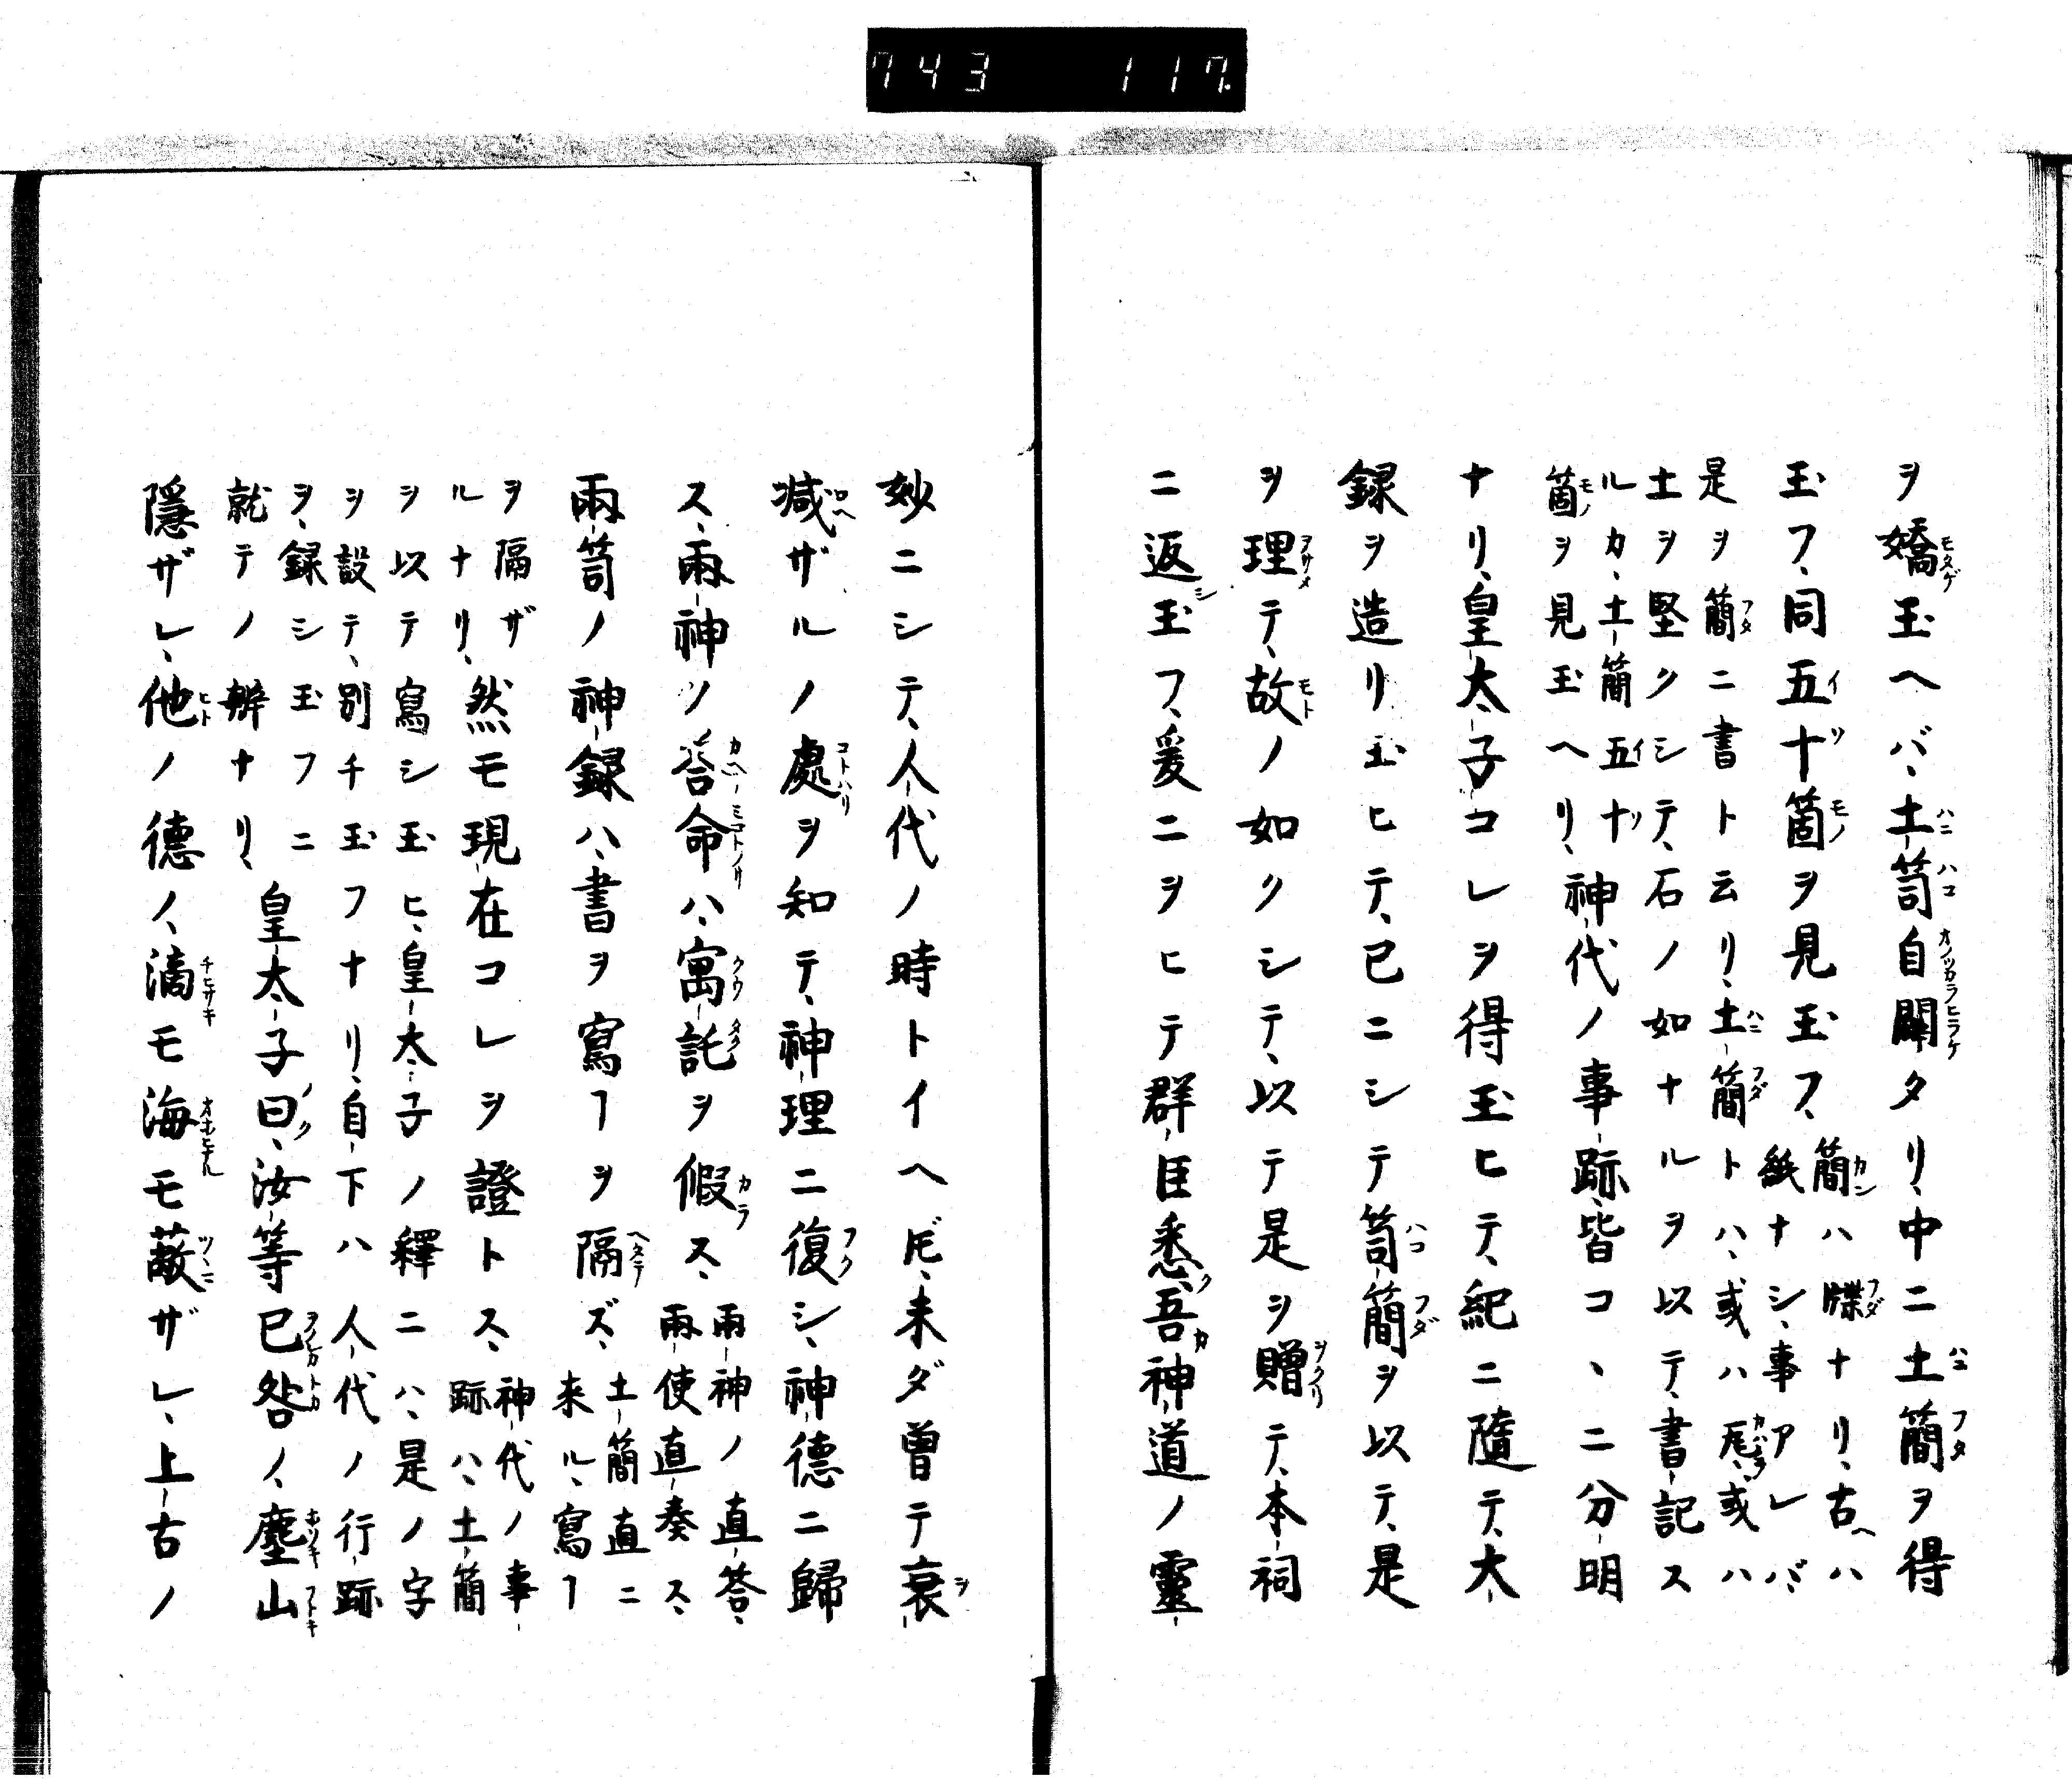 743 117.
ヲ矯玉ヘバ、土笥自開タリ、中ニ土簡ヲ得
玉フ、同五十箇ヲ見玉フ、簡ハ牒ナリ、古ヘハ
紙ナシ、事アレバ、
是ヲ簡ニ書ト云リ、土簡トハ、或ハ瓦、或ハ
土ヲ堅クシテ、石ノ如ナルヲ以テ、書記ス
ルカ、土簡五十
箇ヲ見玉ヘリ、神代ノ事跡、皆コヽニ分明
ナリ、皇太子コレヲ得玉ヒテ、紀ニ隨テ、大
録ヲ造リ玉ヒテ、已ニシテ笥簡ヲ以テ、是
ヲ理テ、故ノ如クシテ、以テ是ヲ贈テ、本祠
ニ返玉フ、爰ニヲヒテ群臣悉、吾神道ノ靈
妙ニシテ、人代ノ時トイヘ𪜈、未ダ曽テ衰
減ザルノ處ヲ知テ、神理ニ復シ、神德ニ歸
ス、兩神ノ荅命ハ、寓託ヲ假ス、兩神ノ直答、
兩使直奏ス、
兩笥ノ神録ハ、書ヲ寫ヿヲ隔ズ、土簡直ニ
来ル、寫ヿ
ヲ隔ザ
ルナリ、然モ現在コレヲ證トス、神代ノ事
跡ハ、土簡
ヲ以テ寫シ玉ヒ、皇太子ノ釋ニハ、是ノ字
ヲ設テ、別チ玉フナリ、自下ハ人代ノ行跡
ヲ、録シ玉フニ
就テノ辨ナリ、皇太子曰、汝等已咎ノ、塵山
隱ザレ、他ノ德ノ、滴モ海モ蔽ザレ、上古ノ